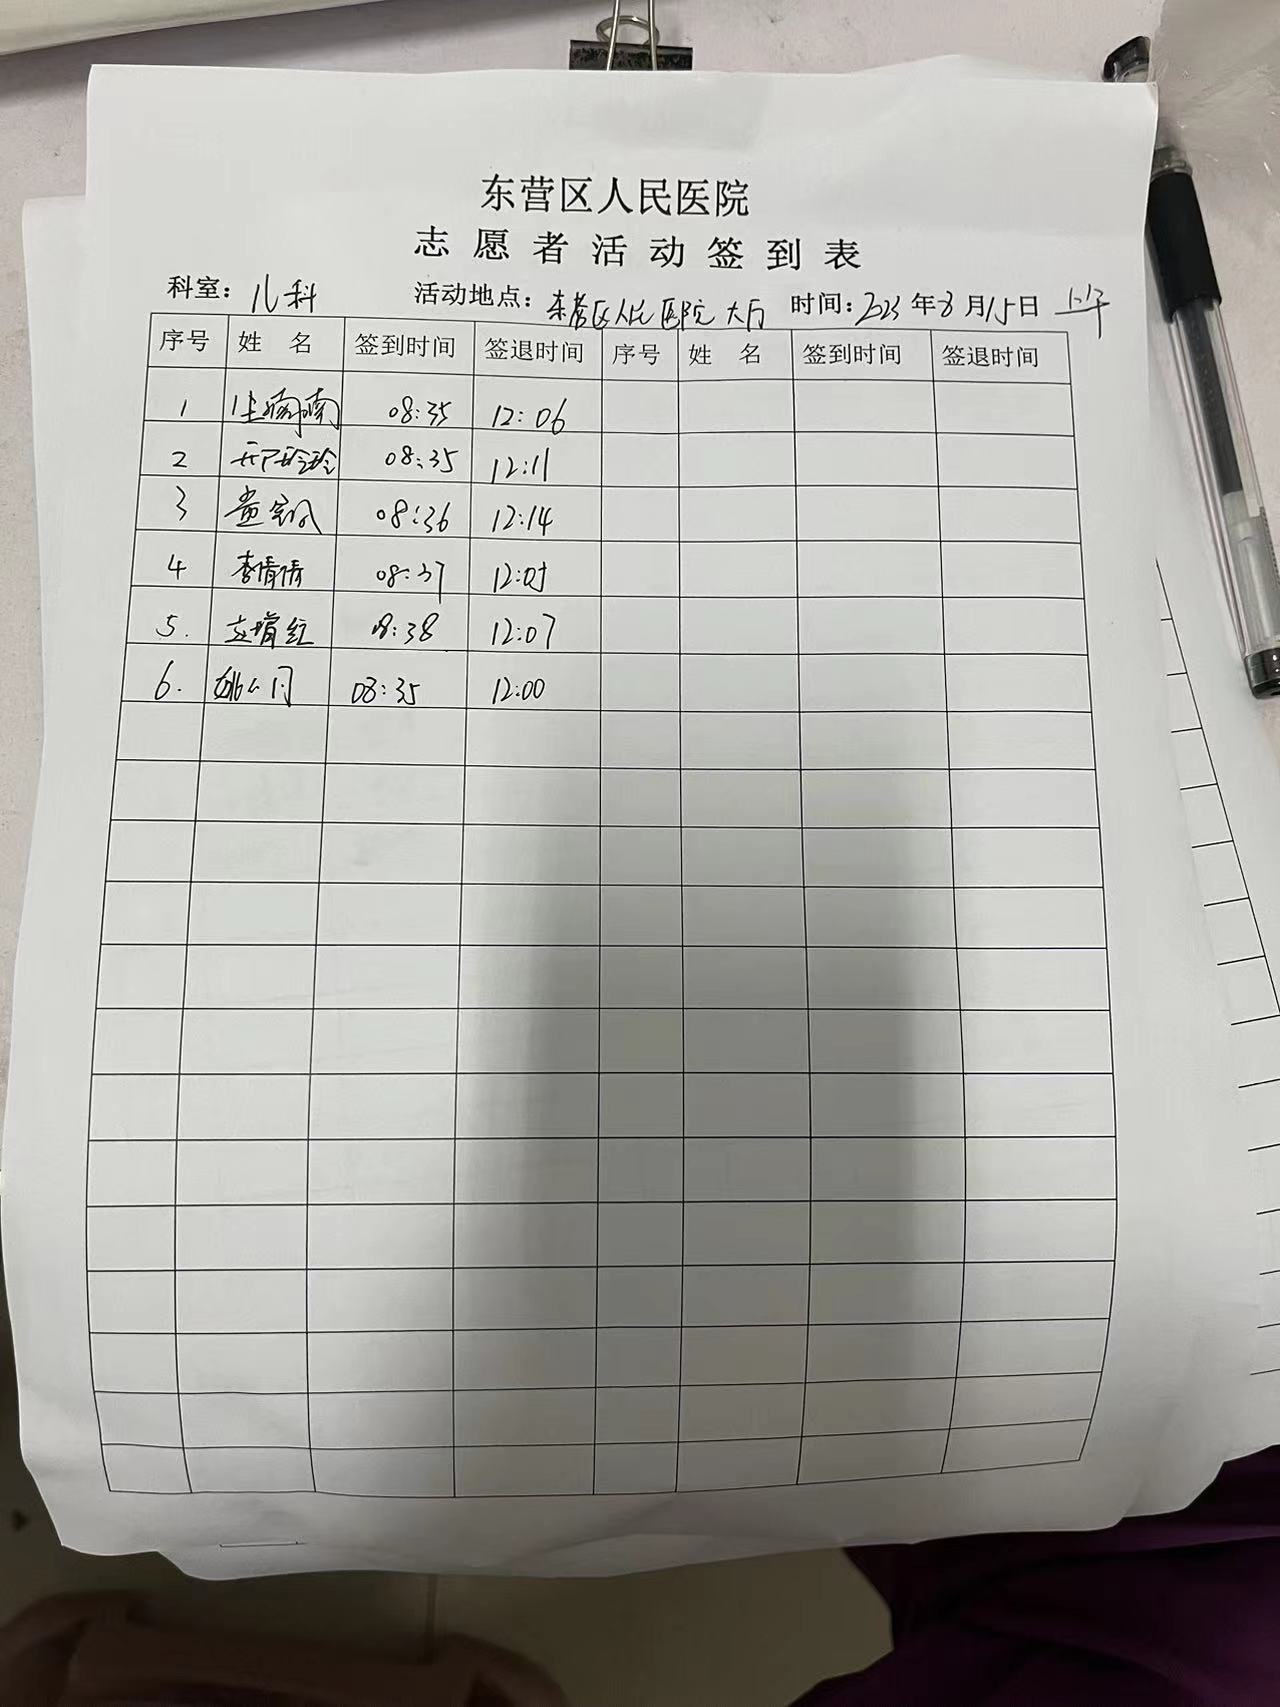 东营区人民医院
志愿者活动签到表
科室：儿科 活动地点：东营区人民医院大厅 时间：2023年8月15日 上午
序号 姓名 签到时间 签退时间 序号 姓名 签到时间 签退时间
1 08:35 12:06
2 邢玲玲 08:35 12:11
3 08:36 12:14
4 李倩倩 08:37
5. 08:38 12:07
6. 08:35 12:00